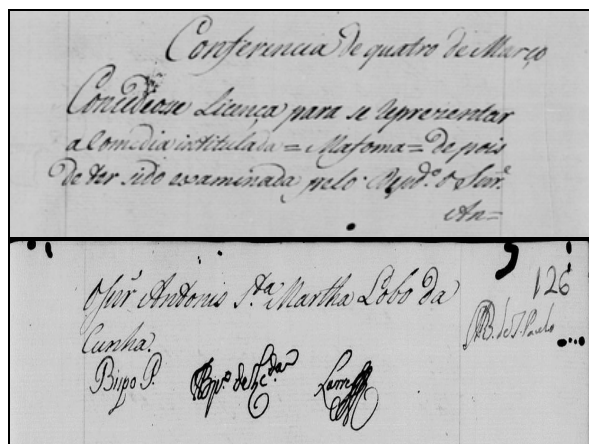 Conferencia de quatro de Março
Concedeose Licença para se reprezentar
a Comedia intitulada = Mafoma = depois
de ter sido examinada pelo Dep.º o Snr.
An=
O Snr Antonio S.ta Martha Lobo da
Cunha.
126
B. de S. Paulo
Bispo P.